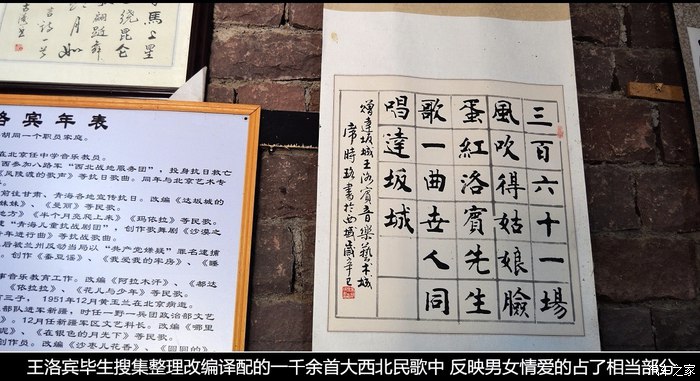 洛宾年表
胡同一个职员家庭。
在北京任中学音乐教员。
西参加八路军“西北战地服务团”，投身抗日救亡
风陵渡的歌声》等抗日歌曲。同年与北京艺术专
前往甘肃、青海各地宣传抗日。改编《达坂城的
妹妹》、《曼丽》等民歌。
地方》《半个月亮爬上来》《玛依拉》等民歌。
海儿童抗战剧团”，创作歌舞剧《沙漠之
年进行曲》等抗战歌曲。
后被兰州反动当局以“共产党嫌疑”罪名逮捕
创作《蚕豆谣》、《我爱我的牢房》、《睡
音乐教育工作。改编《阿拉木汗》、《都达
《依拉拉》、《花儿与少年》等民歌。
育三子，1951年12月黄玉兰在北京病逝。
部队进军新疆，时任一野一兵团政治部文艺
，12月任新疆军区文艺科长。改编《哪里
》、《在银色的月光下》等民歌。
创作《沙枣儿花香》、《圆圆的
三百六十一場
風吹得姑娘臉
蛋紅洛賓先生
歌一曲世人同
唱達坂城
贈達坂城王洛賓音樂藝术城
書於西城歲辛巳
王洛宾毕生搜集整理改编译配的一千余首大西北民歌中 反映男女情爱的占了相当部分